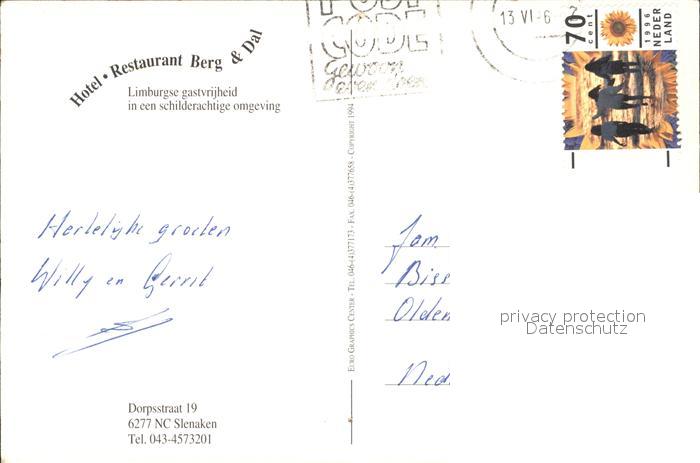 Hotel • Restaurant Berg & Dal
Limburgse gastvrijheid
in een schilderachtige omgeving
CODE
Gewoon
even doen
13 VI -6
70 cent
1996
NEDER
LAND
Hartelijke groeten
Willy en Gerrit
EURO GRAPHICS CENTER - TEL. 046-(4)377173 - FAX. 046-(4)377658 - COPYRIGHT 1994
Fam.
Biss
Olden
Ned.
privacy protection
Datenschutz
Dorpsstraat 19
6277 NC Slenaken
Tel. 043-4573201